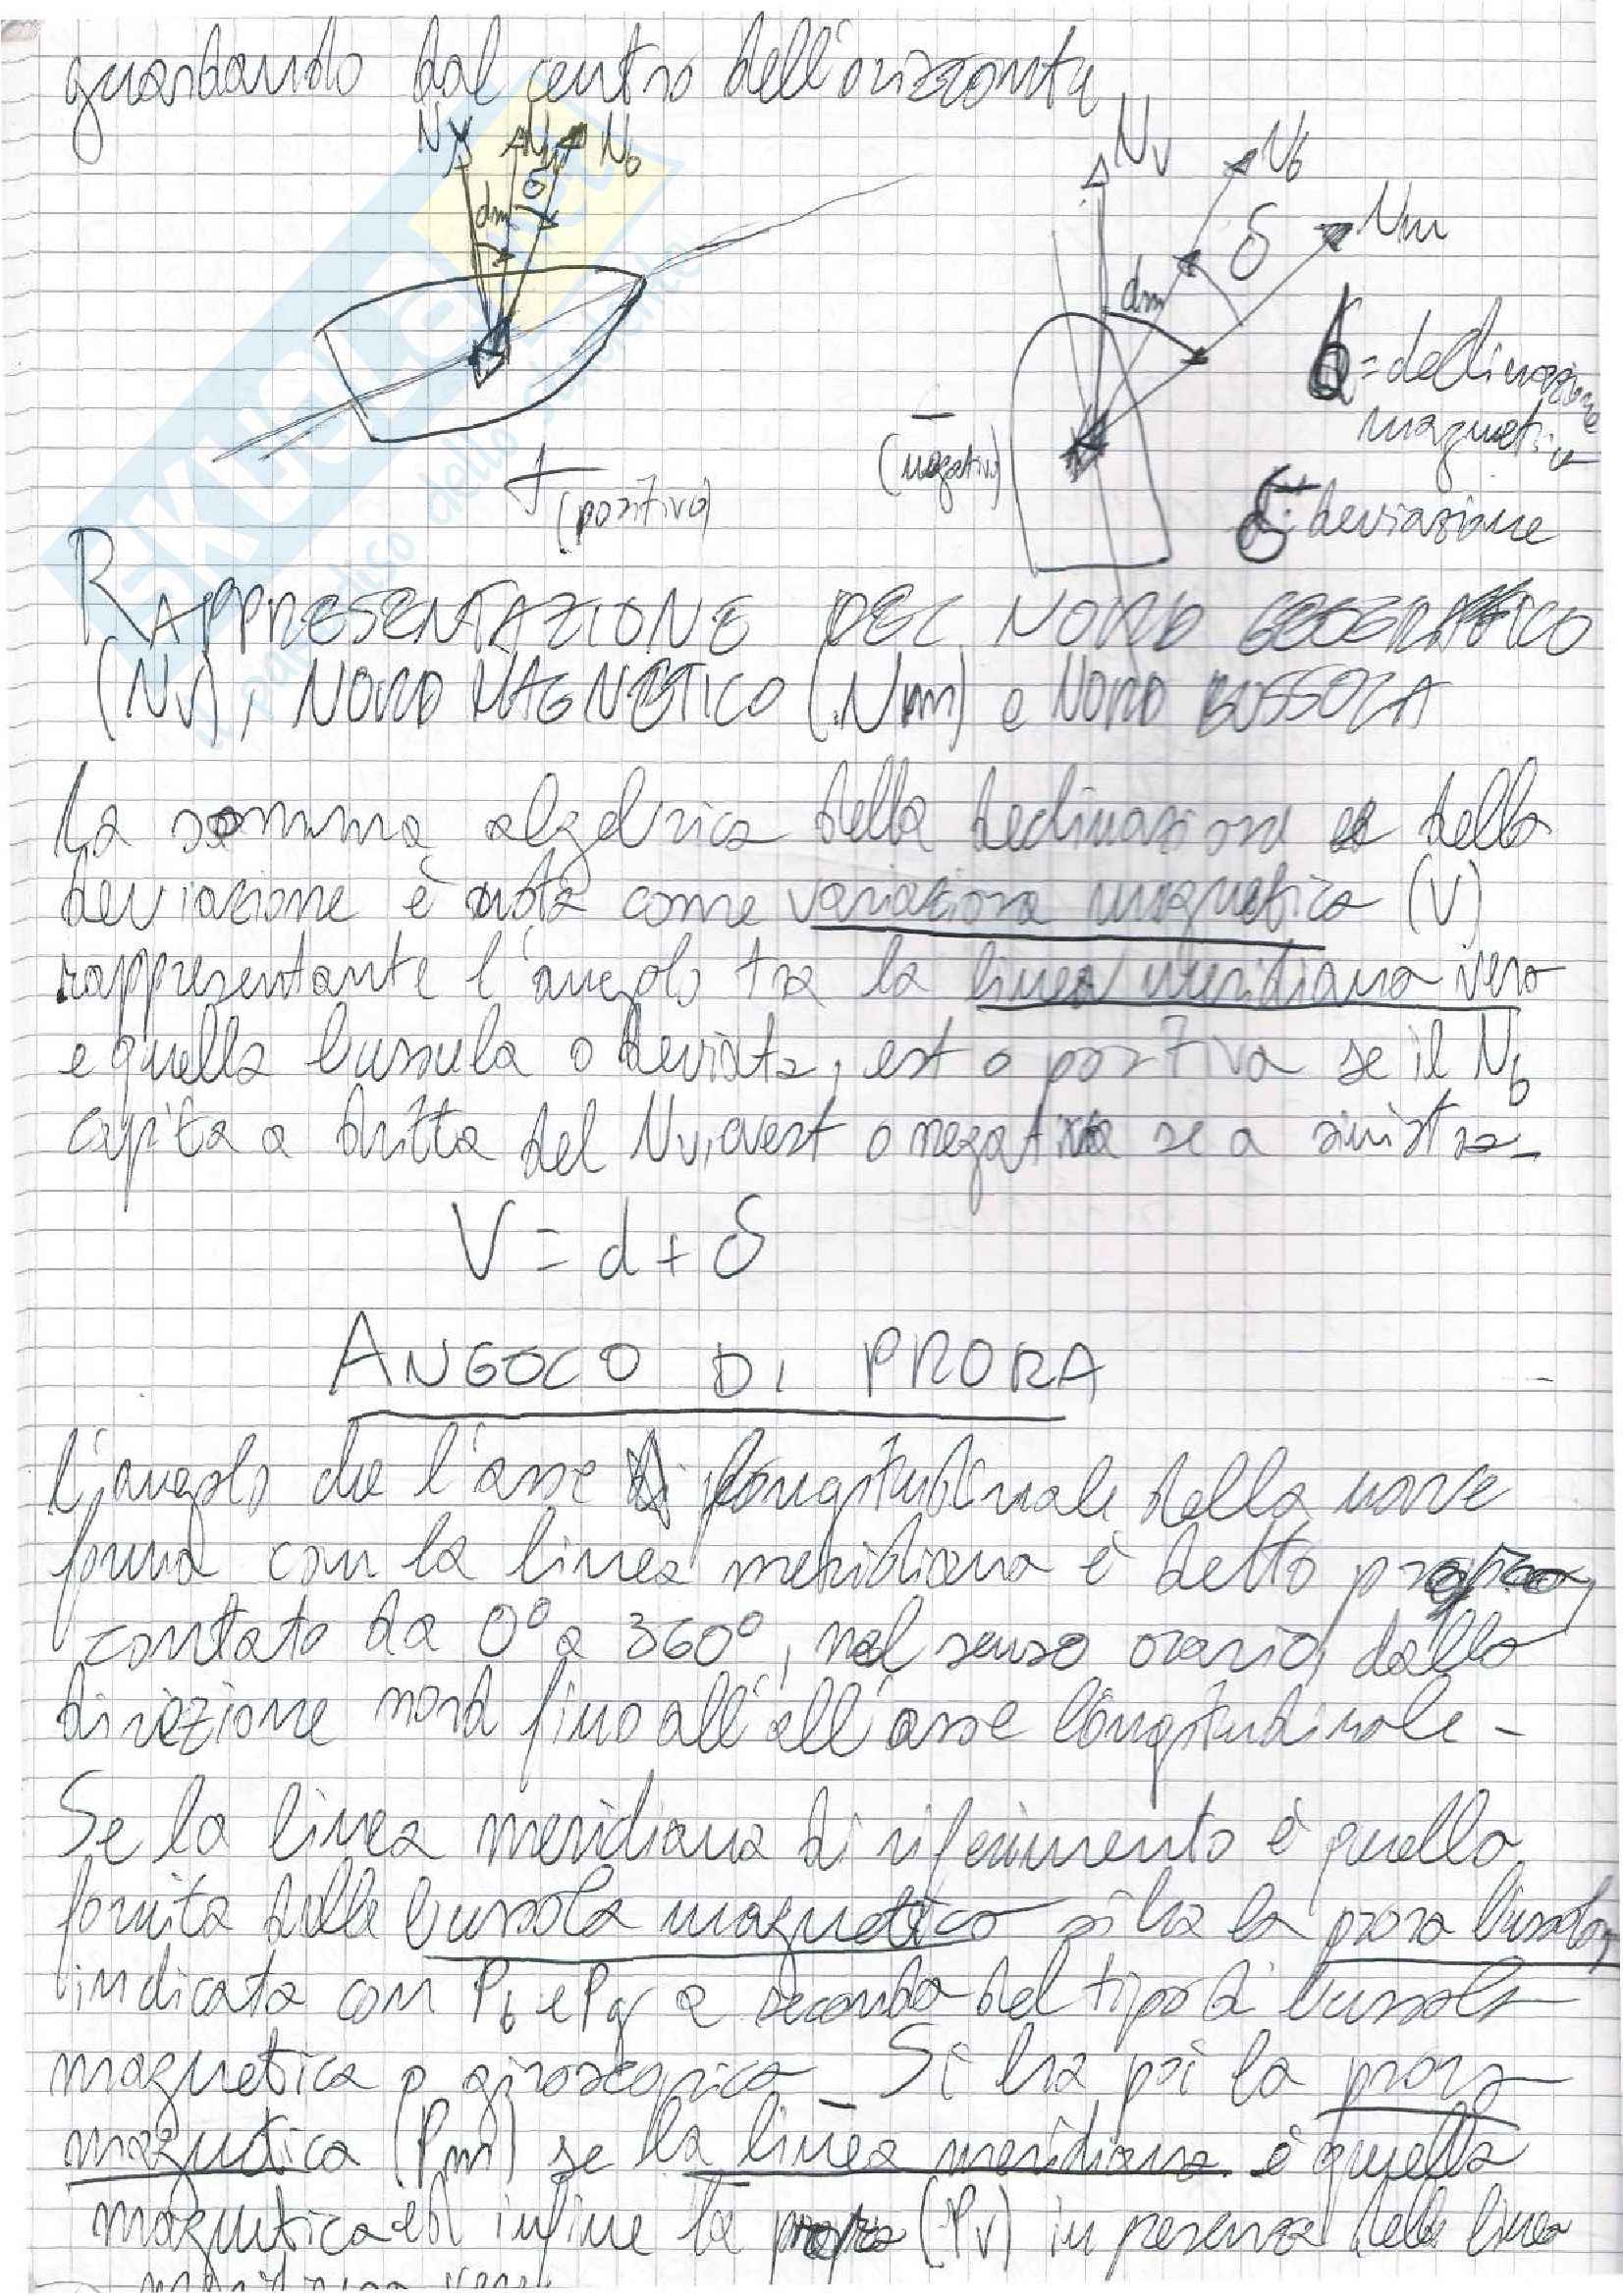 guardando dal centro dell'orizzonte
Nv Nm Nb
dm δ
+ (positivo)
Nv Nb Nm
dm δ
- (negativo)
d = declinazione magnetica
δ = deviazione
RAPPRESENTAZIONE DEL NORD GEOGRAFICO
(Nv), NORD MAGNETICO (Nm) e NORD BUSSOLA
La somma algebrica della declinazione e della
deviazione è nota come variazione magnetica (V)
rappresentante l'angolo tra la linea meridiana vera
e quella bussula o deviata, est o positiva se il Nb
capita a dritta del Nv, ovest o negativa se a sinistra-
V = d + δ
ANGOLO DI PRORA
L'angolo che l'asse longitudinale della nave
forma con la linea meridiana è detto
contato da 0° a 360°, nel senso orario, dalla
direzione nord fino all'all'asse longitudinale -
Se la linea meridiana di riferimento è quella
fornita dalla bussola magnetica si ha la prora bussola,
indicata con Pb e Pg a seconda del tipo di bussola
magnetica o giroscopica - Si ha poi la prora
magnetica (Pm) se la linea meridiana è quella
magnetica ed infine la prora (Pv) in presenza della linea
meridiana vera.
SKUOLA.net
il paradiso dello studente